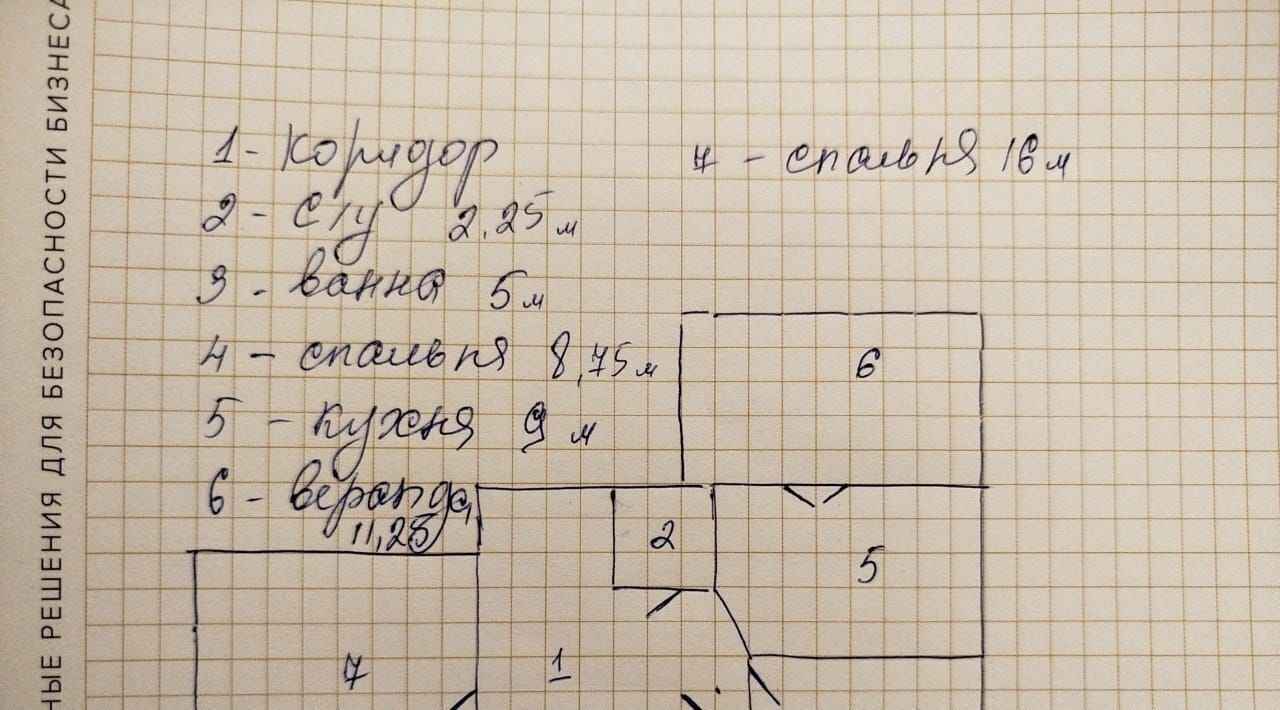 НЫЕ РЕШЕНИЯ ДЛЯ БЕЗОПАСНОСТИ БИЗНЕСА
1 - коридор
2 - с/у 2.25 м
3 - ванна 5 м
4 - спальня 8,75 м
5 - кухня 9 м
6 - веранда
11,25
7 - спальня 16 м
6
2
5
7
1